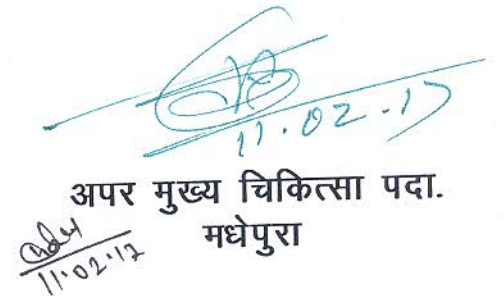 11.02.17
अपर मुख्य चिकित्सा पदा.
मधेपुरा
11.02.17